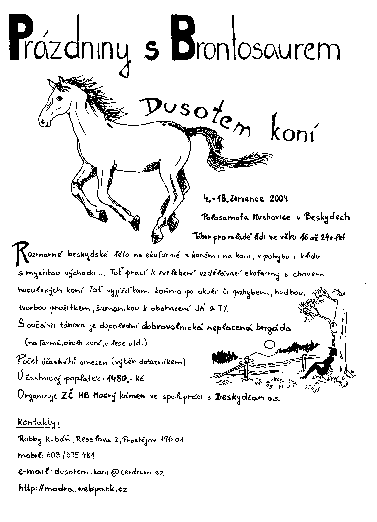 Prázdniny s Brontosaurem
Dusotem koní
4.-18. července 2004
Polosamota Muchovice v Beskydech
Tábor pro mladé lidi ve věku 16 až 24-ti let
Rozmarné beskydské léto na ekofarmě s koněmi, na koni, v pohybu i klidu
s myšlkou východu... Toť práce k zvelebení vzdělávací ekofarmy s chovem
huculských koní. Toť vyjížďkami koňmo po okolí či pohybem, hudbou,
tvorbou prožitkem, šamankou k obohacení JÁ a TY.
Součástí tábora je dopolední dobrovolnická neplacená brigáda
(na farmě, okolo koní, v lese atd.)
Počet účastníků omezen (výběr dotazníkem)
Účastnický poplatek: 1480,- Kč
Organizuje ZČ HB Modrý kámen ve spolupráci s Beskydčan o.s.
Kontakty:
Robby Kubáň, Resslova 2, Prostějov 796 01
mobil: 608/835 481
e-mail: dusotem.koni@centrum.cz
http://modra.webpark.cz